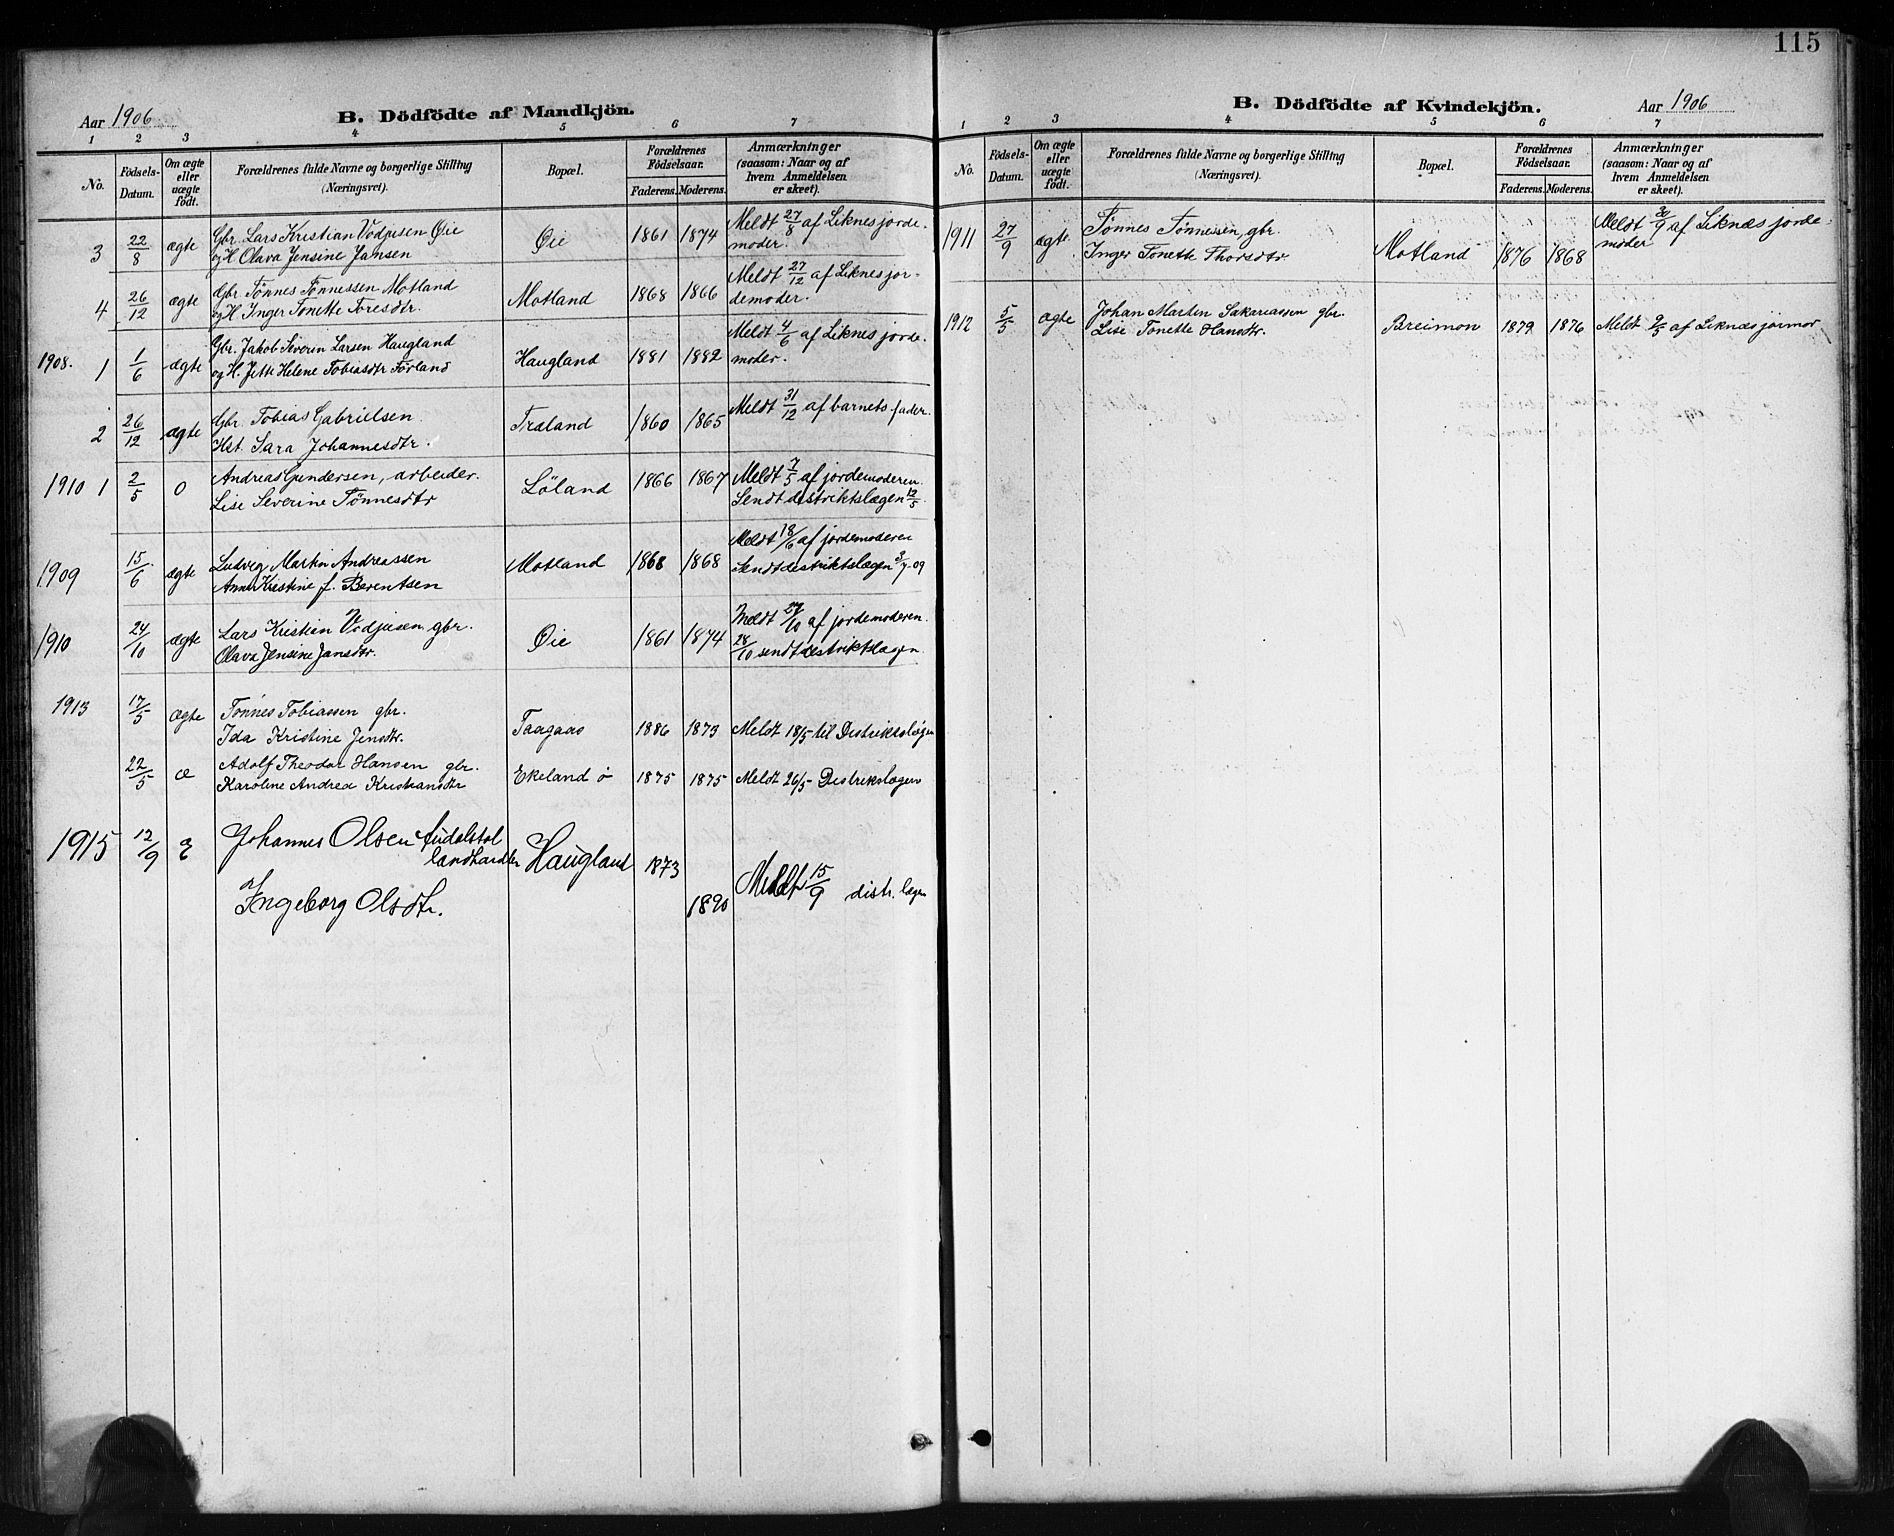 115
Aar 1906
B. Dödfödte af Mandkjön.
1 2 3 4 5 6 7
No.
Födsels-Datum.
Om ægte eller uægte födt.
Forældrenes fulde Navne og borgerlige Stilling (Næringsvei).
Bopæl.
Forældrenes Födselsaar.
Faderens. Moderens.
Anmærkninger (saasom: Naar og af hvem Anmeldelsen er skeet).
3 22/8 ægte Gbr. Lars Kristian Vodjusen Øie Øie 1861 1874 Meldt 27/8 af Liknes jorde-
og H Olava Jensine Jansen moder.
4 26/12 ægte Gbr. Tönnes Tönnessen Motland Motland 1868 1866 Meldt 27/12 af Liknes jor-
og H Inger Tonette Toresdtr. demoder.
1908. 1 1/6 ægte Gbr. Jakob Severin Larsen Haugland Haugland 1881 1882 Meldt 4/6 af Liknes jorde-
og H. Jette Helene Tobiasdtr Förland moder.
2 26/12 ægte Gbr. Tobias Gabrielsen Træland 1860 1865 Meldt 31/12 af barnets fader.
Hst. Sara Johannesdtr.
1910 1 2/5 O Andreas Gundersen, arbeider. Löland 1866 1867 Meldt 7/5 af jordemoderen.
Lise Severine Tönnesdtr Sendt destriktslægen 12/5.
1909 15/6 ægte Ludvig Martin Andreassen Motland 1868 1868 Meldt 18/6 af jordemoderen
Anne Kristine f. Berentsen Sendt destriktslægen 3/7-09
1910 24/10 ægte Lars Kristian Vodjusen gbr. Øie 1861 1874 Meldt 27/10 af jordemoderen.
Olava Jensine Jansdtr. 28/10 sendt destriktslægen.
1913 17/5 ægte Tönnes Tobiassen gbr.
Ida Kristine Jensdtr. Taagaas 1886 1873 Meldt 18/5 til Distrikslögen
22/5 æ Adolf Theodor Hansen gbr. Ekeland ö 1875 1875 Meldt 26/5 Distrikslægen
Karoline Andrea Kristiansdtr
1915 12/9 E Johannes Olsen landhandler Haugland 1873
Ingeborg Olsdtr. 1890 Meldt 15/9 distr. lægen
B. Dödfödte af Kvindekjön.
Aar 1906
1 2 3 4 5 6 7
No.
Födsels-Datum.
Om ægte eller uægte födt.
Forældrenes fulde Navne og borgerlige Stilling (Næringsvei).
Bopæl.
Forældrenes Födselsaar.
Faderens. Moderens.
Anmærkninger (saasom: Naar og af hvem Anmeldelsen er skeet).
1911 27/9 ægte. Tönnes Tönnessen, gbr. Motland 1876 1868 Meldt 30/9 af Liknæs jorde-
Inger Tonette Thorsdtr moder
1912 5/5 ægte Johan Martin Sakariassen gbr. Breimon 1879 1876 Meldt 9/5 af Liknæs jormor
Lise Tonette Hansdtr.